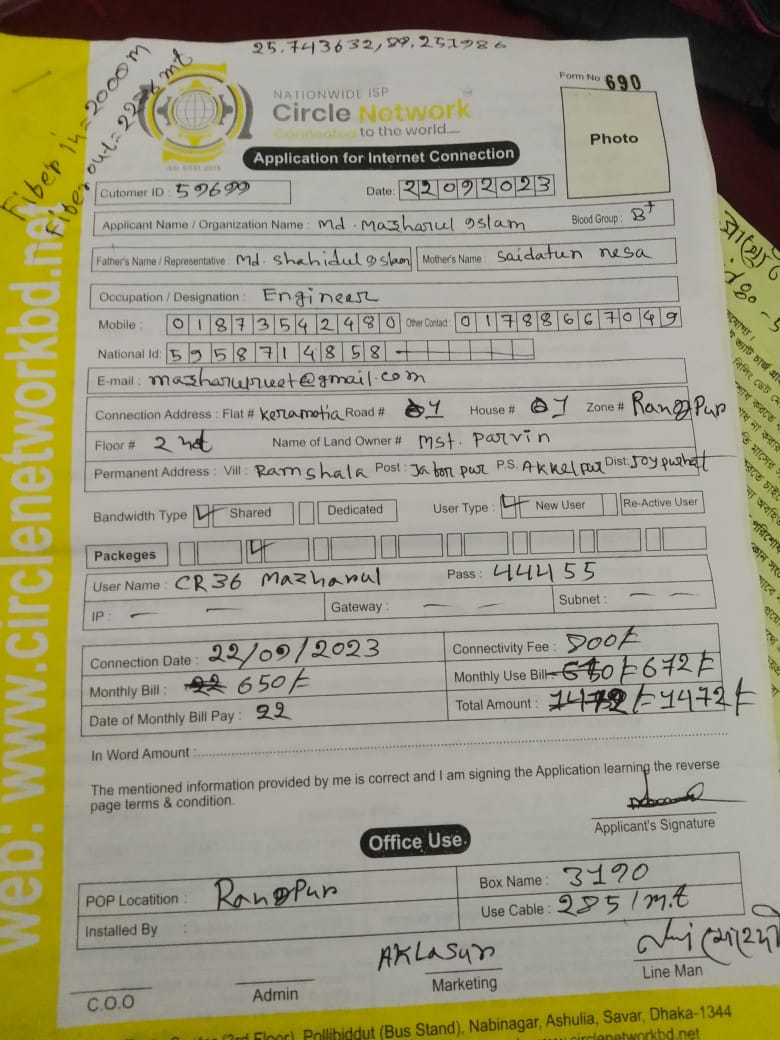 25.743632, 89.251986
Fiber in = 2000m
Fiber out = mt
NATIONWIDE ISP
Circle Network
Connected to the world.....
Form No 690
Photo
Application for Internet Connection
Cutomer ID : 59699 Date: 22092023
Applicant Name / Organization Name : Md. Mazharul Islam Blood Group : B+
Father's Name / Representative : Md. Shahidul Islam Mother's Name : Saidatun nesa
Occupation / Designation : Engineer
Mobile : 01873542480 Other Contact : 01788667049
National Id: 5958714858
E-mail : mazharulruet@gmail.com
Connection Address : Flat # Keramotia Road # 1 House # 1 Zone # Rangpur
Floor # 2nd Name of Land Owner # Mst. Parvin
Permanent Address : Vill : Ramshala Post : Jaborpur P.S. Akkelpur Dist: Joypurhat
Bandwidth Type Shared Dedicated User Type : New User Re-Active User
Packeges
User Name : CR36 Mazharul Pass : 44455
IP : — — Gateway : — — Subnet : — —
Connection Date : 22/09/2023 Connectivity Fee : 800/=
Monthly Bill : 650/= Monthly Use Bill 672/=
Date of Monthly Bill Pay : 22 Total Amount : 1472/=
In Word Amount :
The mentioned information provided by me is correct and I am signing the Application learning the reverse
page terms & condition.
Applicant's Signature
Office Use
POP Locatition : Rangpur Box Name : 3190
Installed By : Use Cable : 285/m.t
AKLASUR
C.O.O Admin Marketing Line Man
Pollibiddut (Bus Stand), Nabinagar, Ashulia, Savar, Dhaka-1344
web: www.circlenetworkbd.net